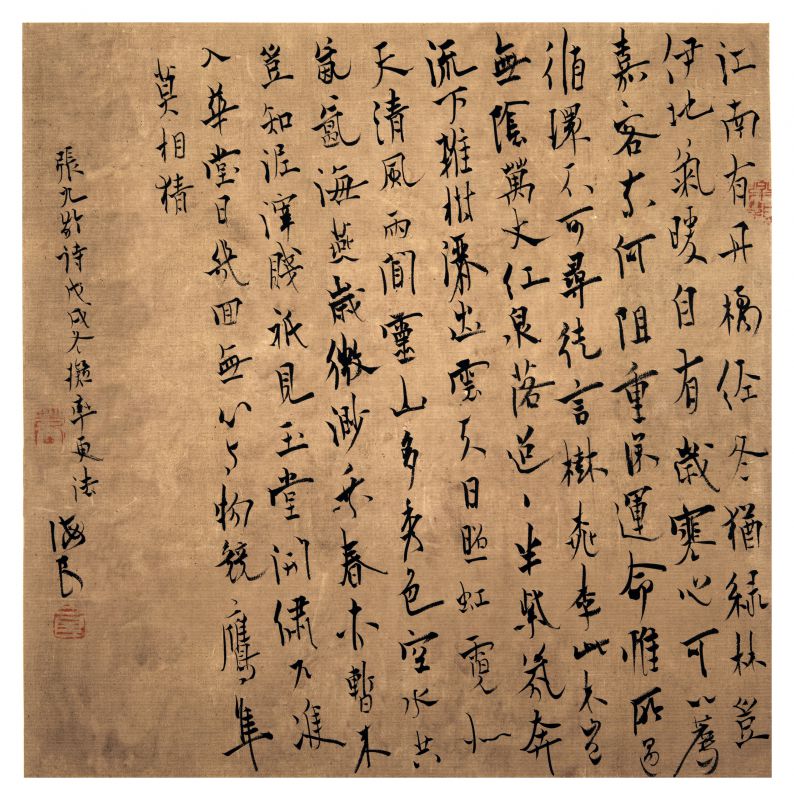 江南有丹橘經冬猶綠林豈
伊地氣暖自有歲寒心可以薦
嘉客奈何阻重深運命惟所遇
循環不可尋徒言樹桃李此木豈
無陰萬丈紅泉落迢〻半紫氛奔
流下雜樹灑出雲天日照虹霓似
天清風雨聞靈山多秀色空水共
氤氳海燕歲微渺乘春亦暫來
豈知泥滓賤祇見玉堂開繡戶
入華堂日幾回無心與物競鷹隼
莫相猜
張九齡詩戊戌冬擬率更法 海民